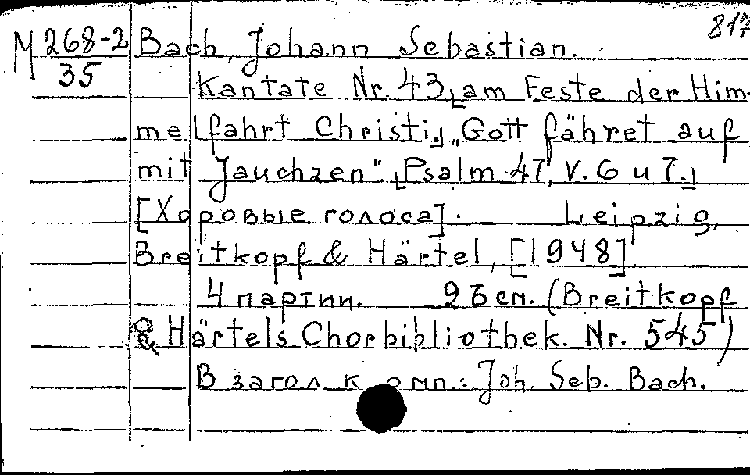 817
М 268-2 Bach, Johann Sebastian.
35 Kantate Nr. 43, [am Feste der Him-
melfahrt Christi.] „Gott fähret auf
mit Jauchzen". [Psalm 47, V. 6 u 7.]
[Хоровые голоса]. Leipzig,
Breitkopf & Härtel, [1948]
4 партии. 26 см. (Breitkopf
& Härtels Chorbibliothek. Nr. 545)
В загол к омп.: Joh. Seb. Bach.